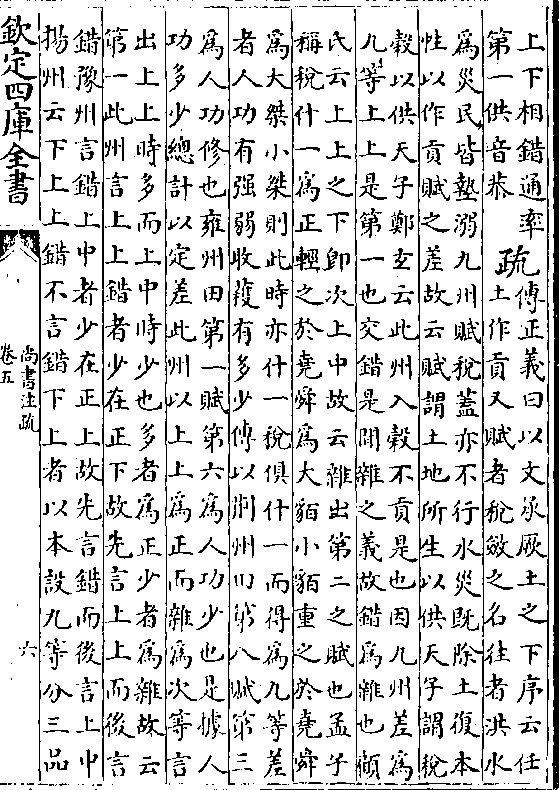 上下相錯通率
第一供音恭
疏
傳正義曰以文承厥土之下序云任
土作貢又賦者稅斂之名往者洪水
爲災民皆墊溺九州賦稅蓋亦不行水災既除土復本
性以作貢賦之差故云賦謂土地所生以供天子謂稅
穀以供天子鄭玄云此州入穀不貢是也因九州差爲
九等上上是第一也交錯是間雜之義故錯爲雜也顧
氏云上上之下卽次上中故云雜出第二之賦也孟子
稱稅什一爲正輕之於堯舜爲大貊小貊重之於堯舜
爲大桀小桀則此時亦什一稅俱什一而得爲九等差
者人功有强弱收穫有多少傳以荆州田第八賦第三
爲人功修也雍州田第一賦第六爲人功少也是據人
功多少總計以定差此州以上上爲正而雜爲次等言
出上上時多而上中時少也多者爲正少者爲雜故云
第一此州言上上錯者少在正下故先言上上而後言
錯豫州言錯上中者少在正上故先言錯而後言上中
揚州云下上上錯不言錯下上者以本設九等分三品
欽定四庫全書
尚書注疏
卷五
六